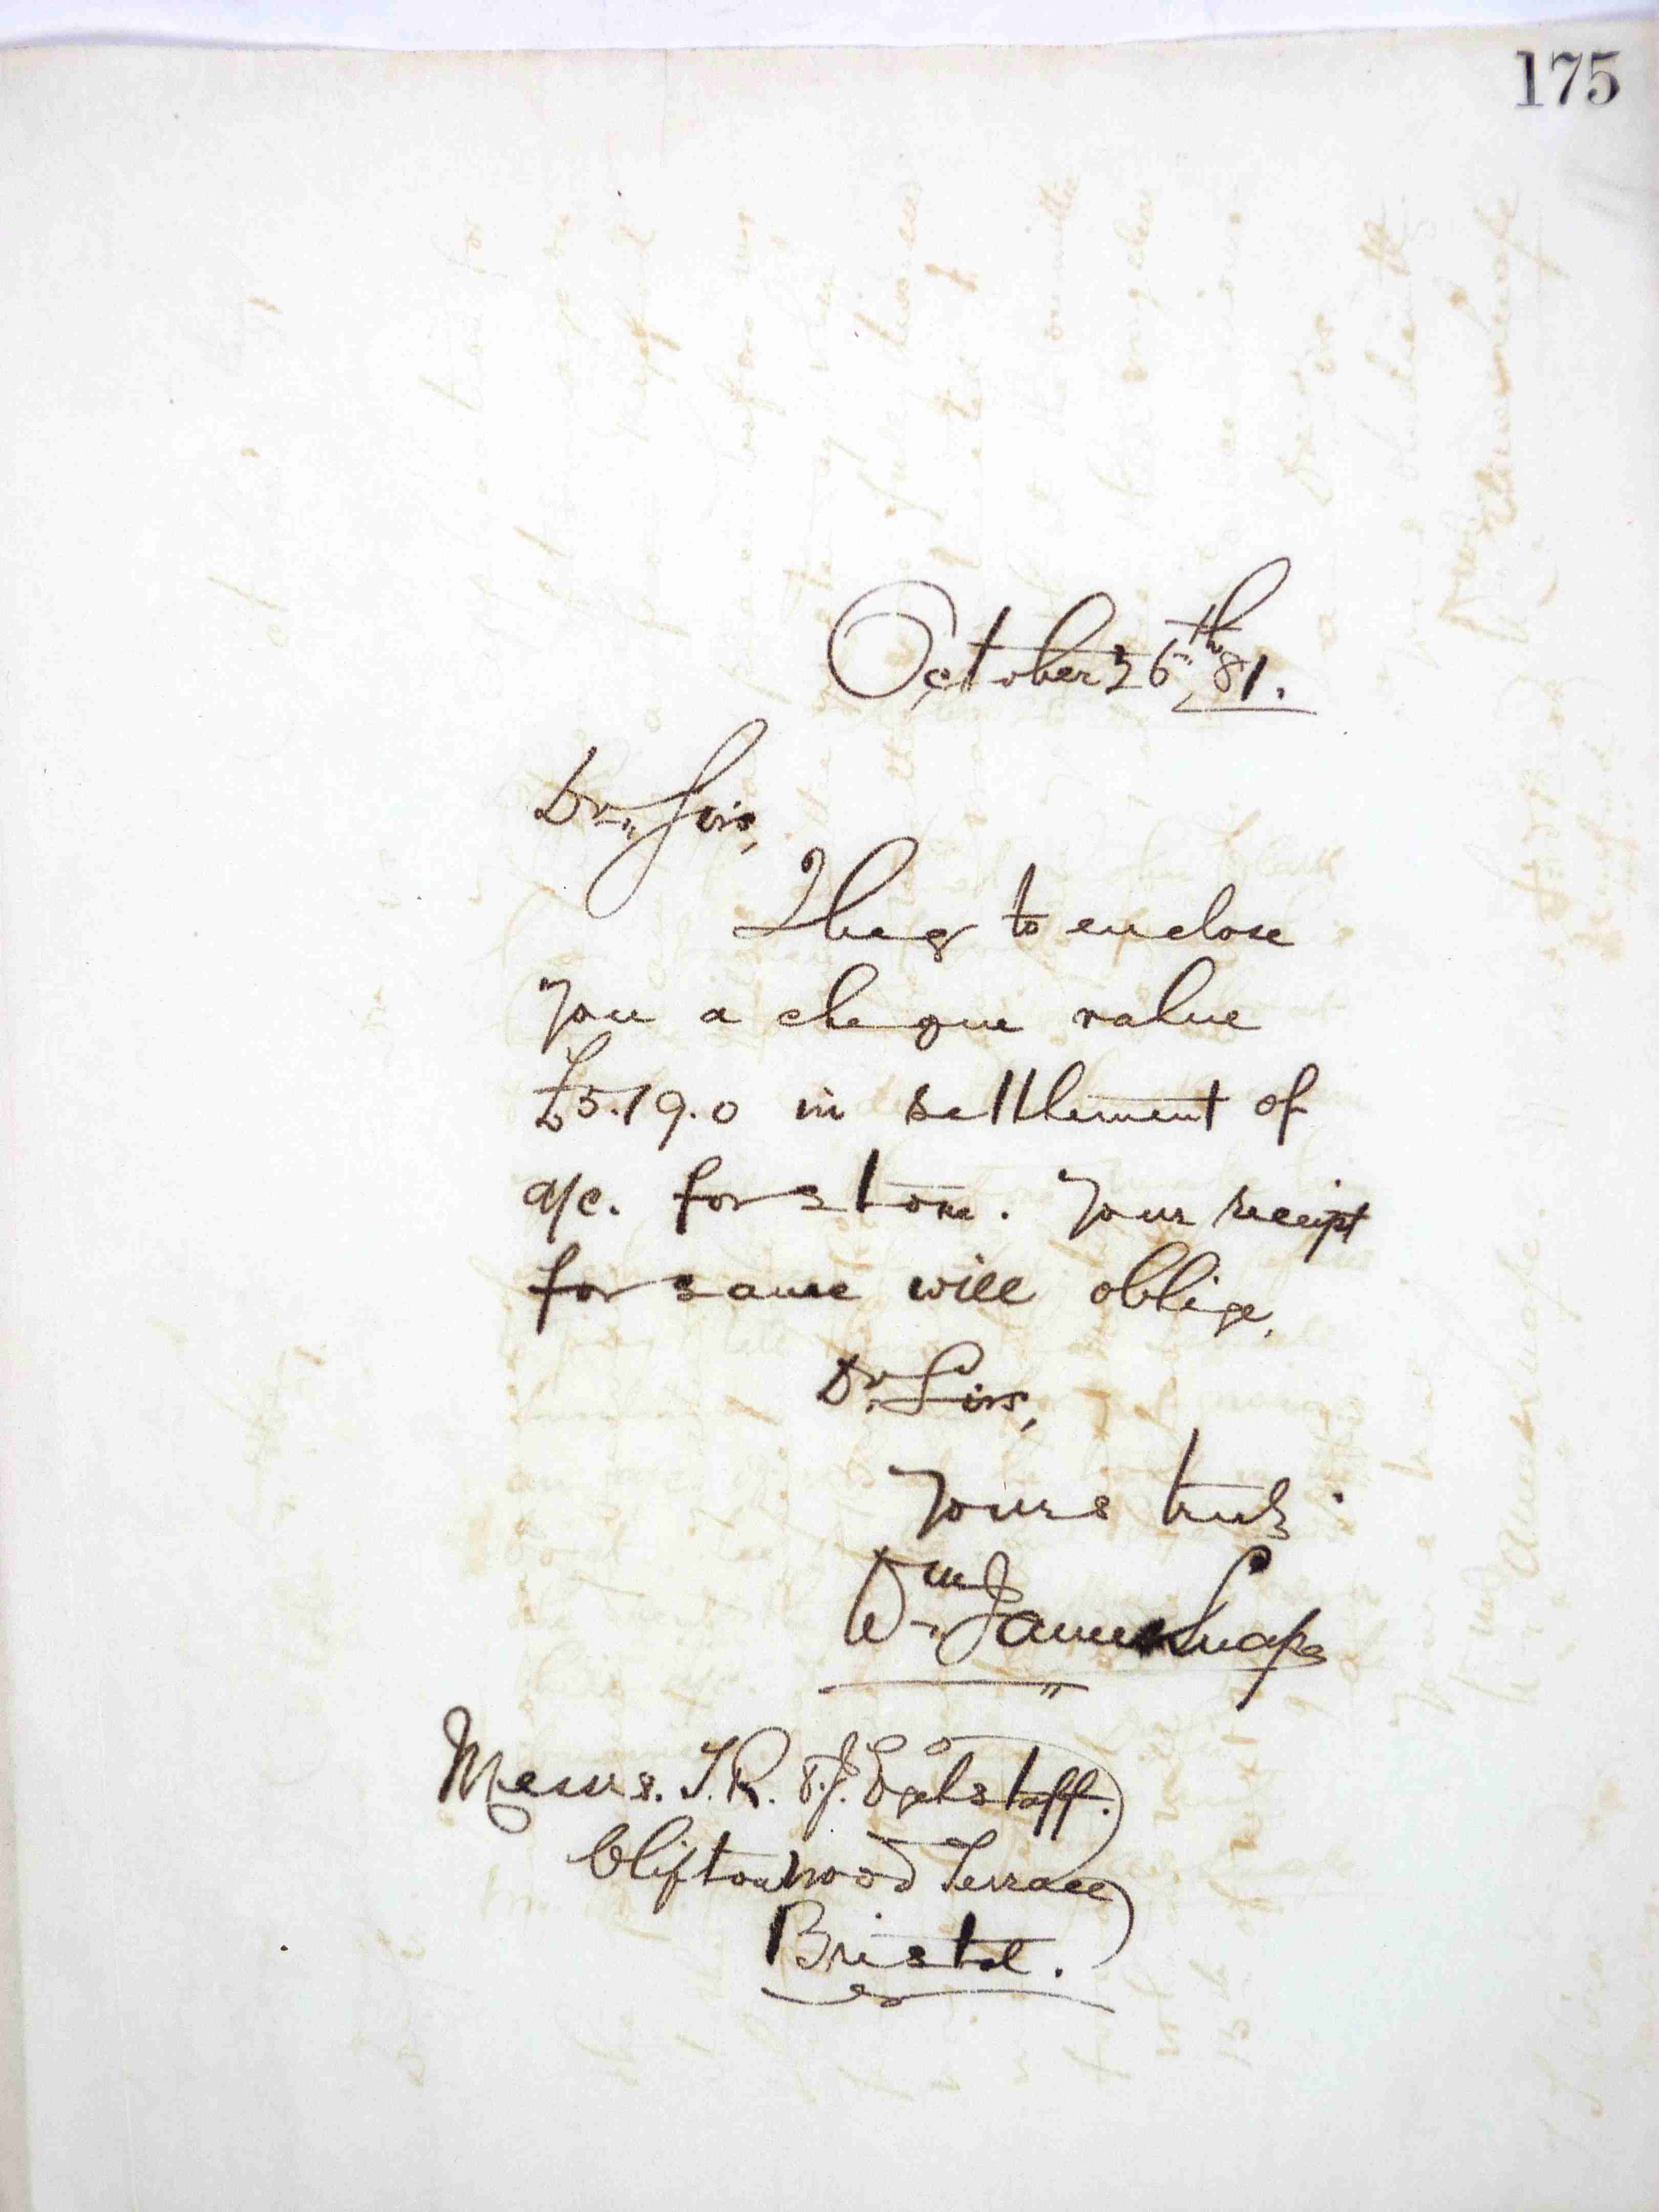 175
October 26th, 81.
Dr. Sirs,
I beg to enclose
you a cheque value
£5.19.0 in settlement of
a/c. for stone. Your receipt
for same will oblige,
Dr. Sirs,
Yours truly
Wm. James Snape
Messrs. T.R. & J. Egelstaff.
Cliftonwood Terrace
Bristol.